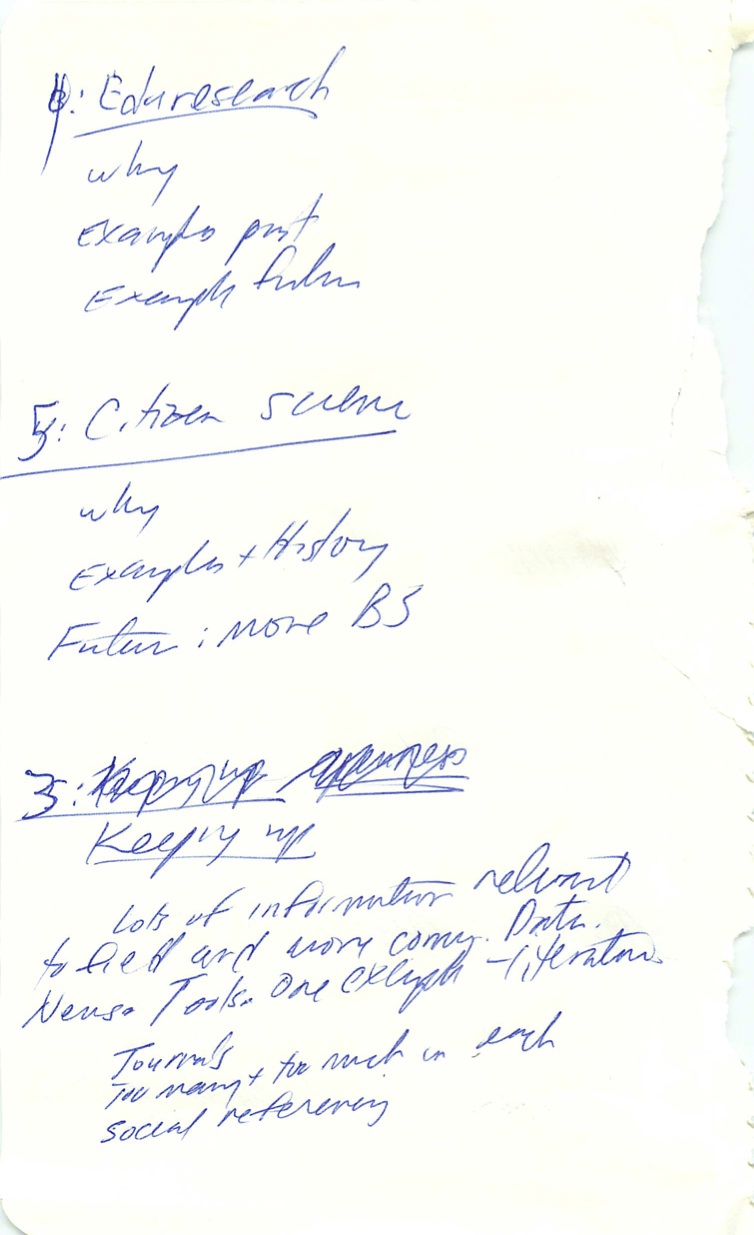 : Edu research
why
Examples past
Example future
5: Citizen science
why
Examples + History
Future: more BS
3: Keeping up openness
Keeping up
Lots of information relevant
to field and more coming. Data.
News. Tools. One example - literature.
Journals
Too many + too much in each
social referencing